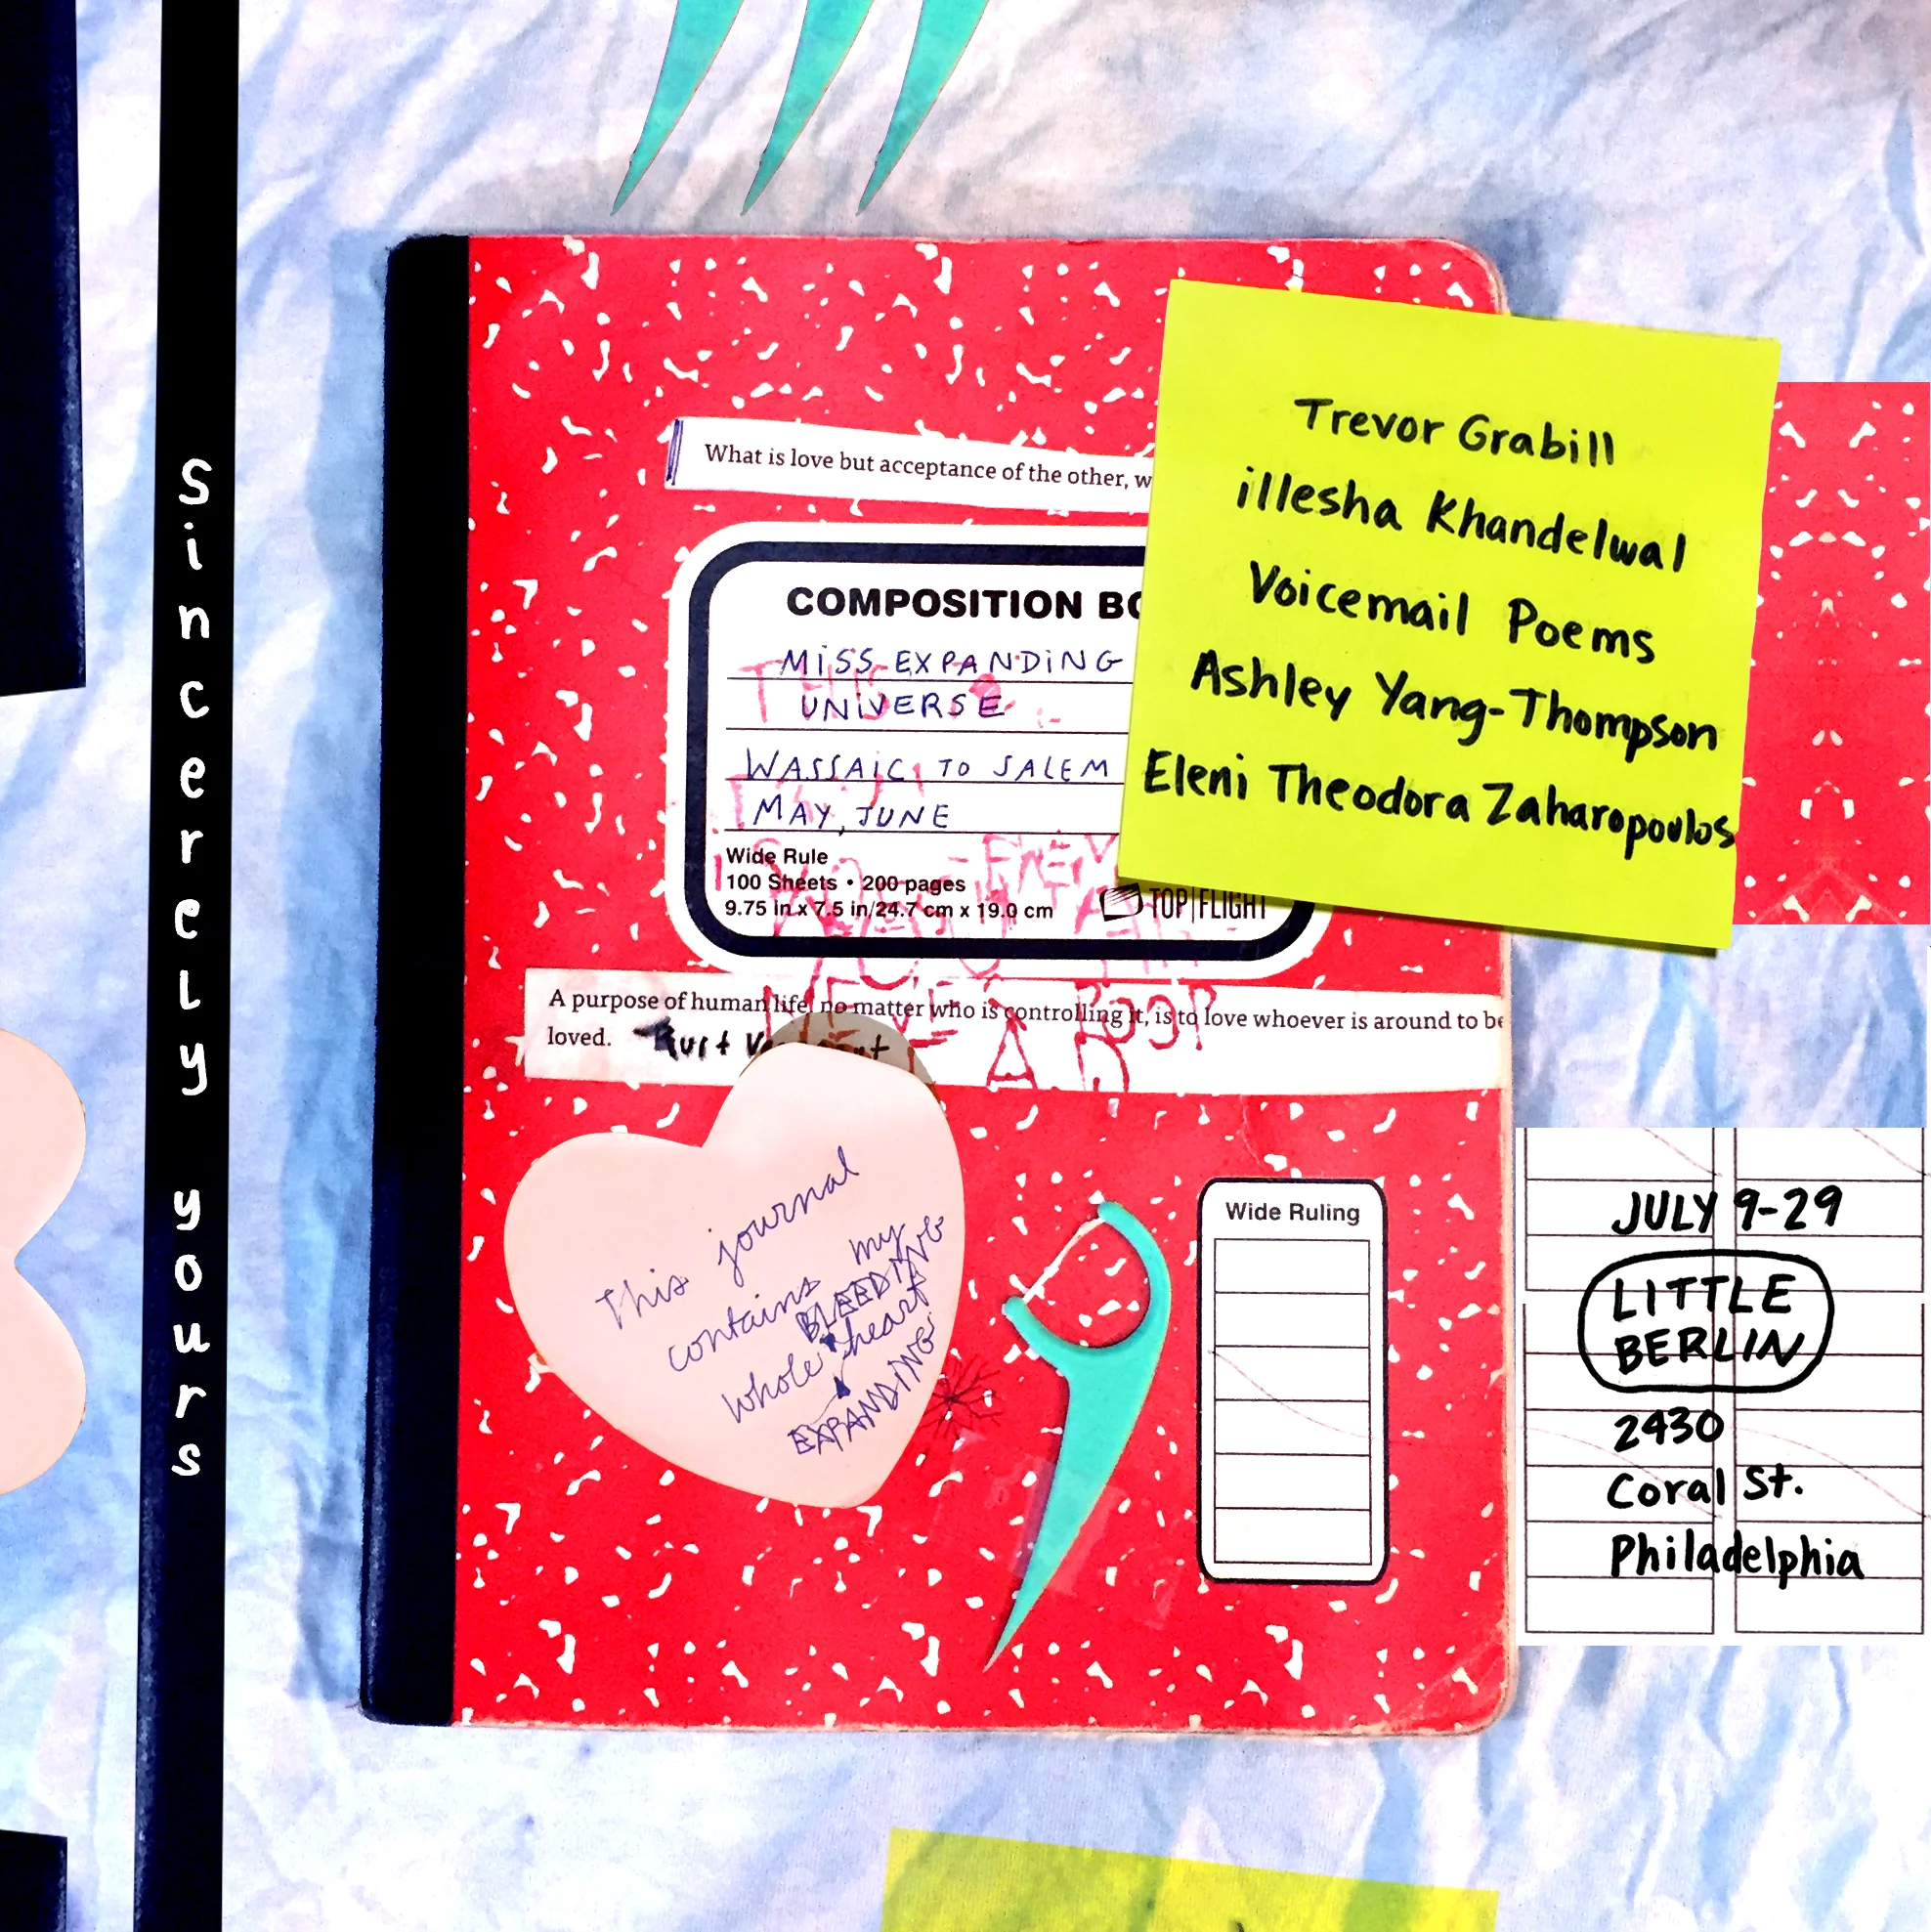 Sincerely yours
What is love but acceptance of the other, w
COMPOSITION BO
MISS EXPANDING
UNIVERSE
WASSAIC TO SALEM
MAY, JUNE
Wide Rule
100 Sheets • 200 pages
9.75 in x 7.5 in/24.7 cm x 19.0 cm
TOP|FLIGHT
Trevor Grabill
illesha Khandelwal
Voicemail Poems
Ashley Yang-Thompson
Eleni Theodora Zaharopoulos
A purpose of human life, no matter who is controlling it, is to love whoever is around to be
loved. Kurt
This journal
contains my
BLEEDING
whole heart
EXPANDING
Wide Ruling
JULY 9-29
LITTLE
BERLIN
2430
Coral St.
Philadelphia